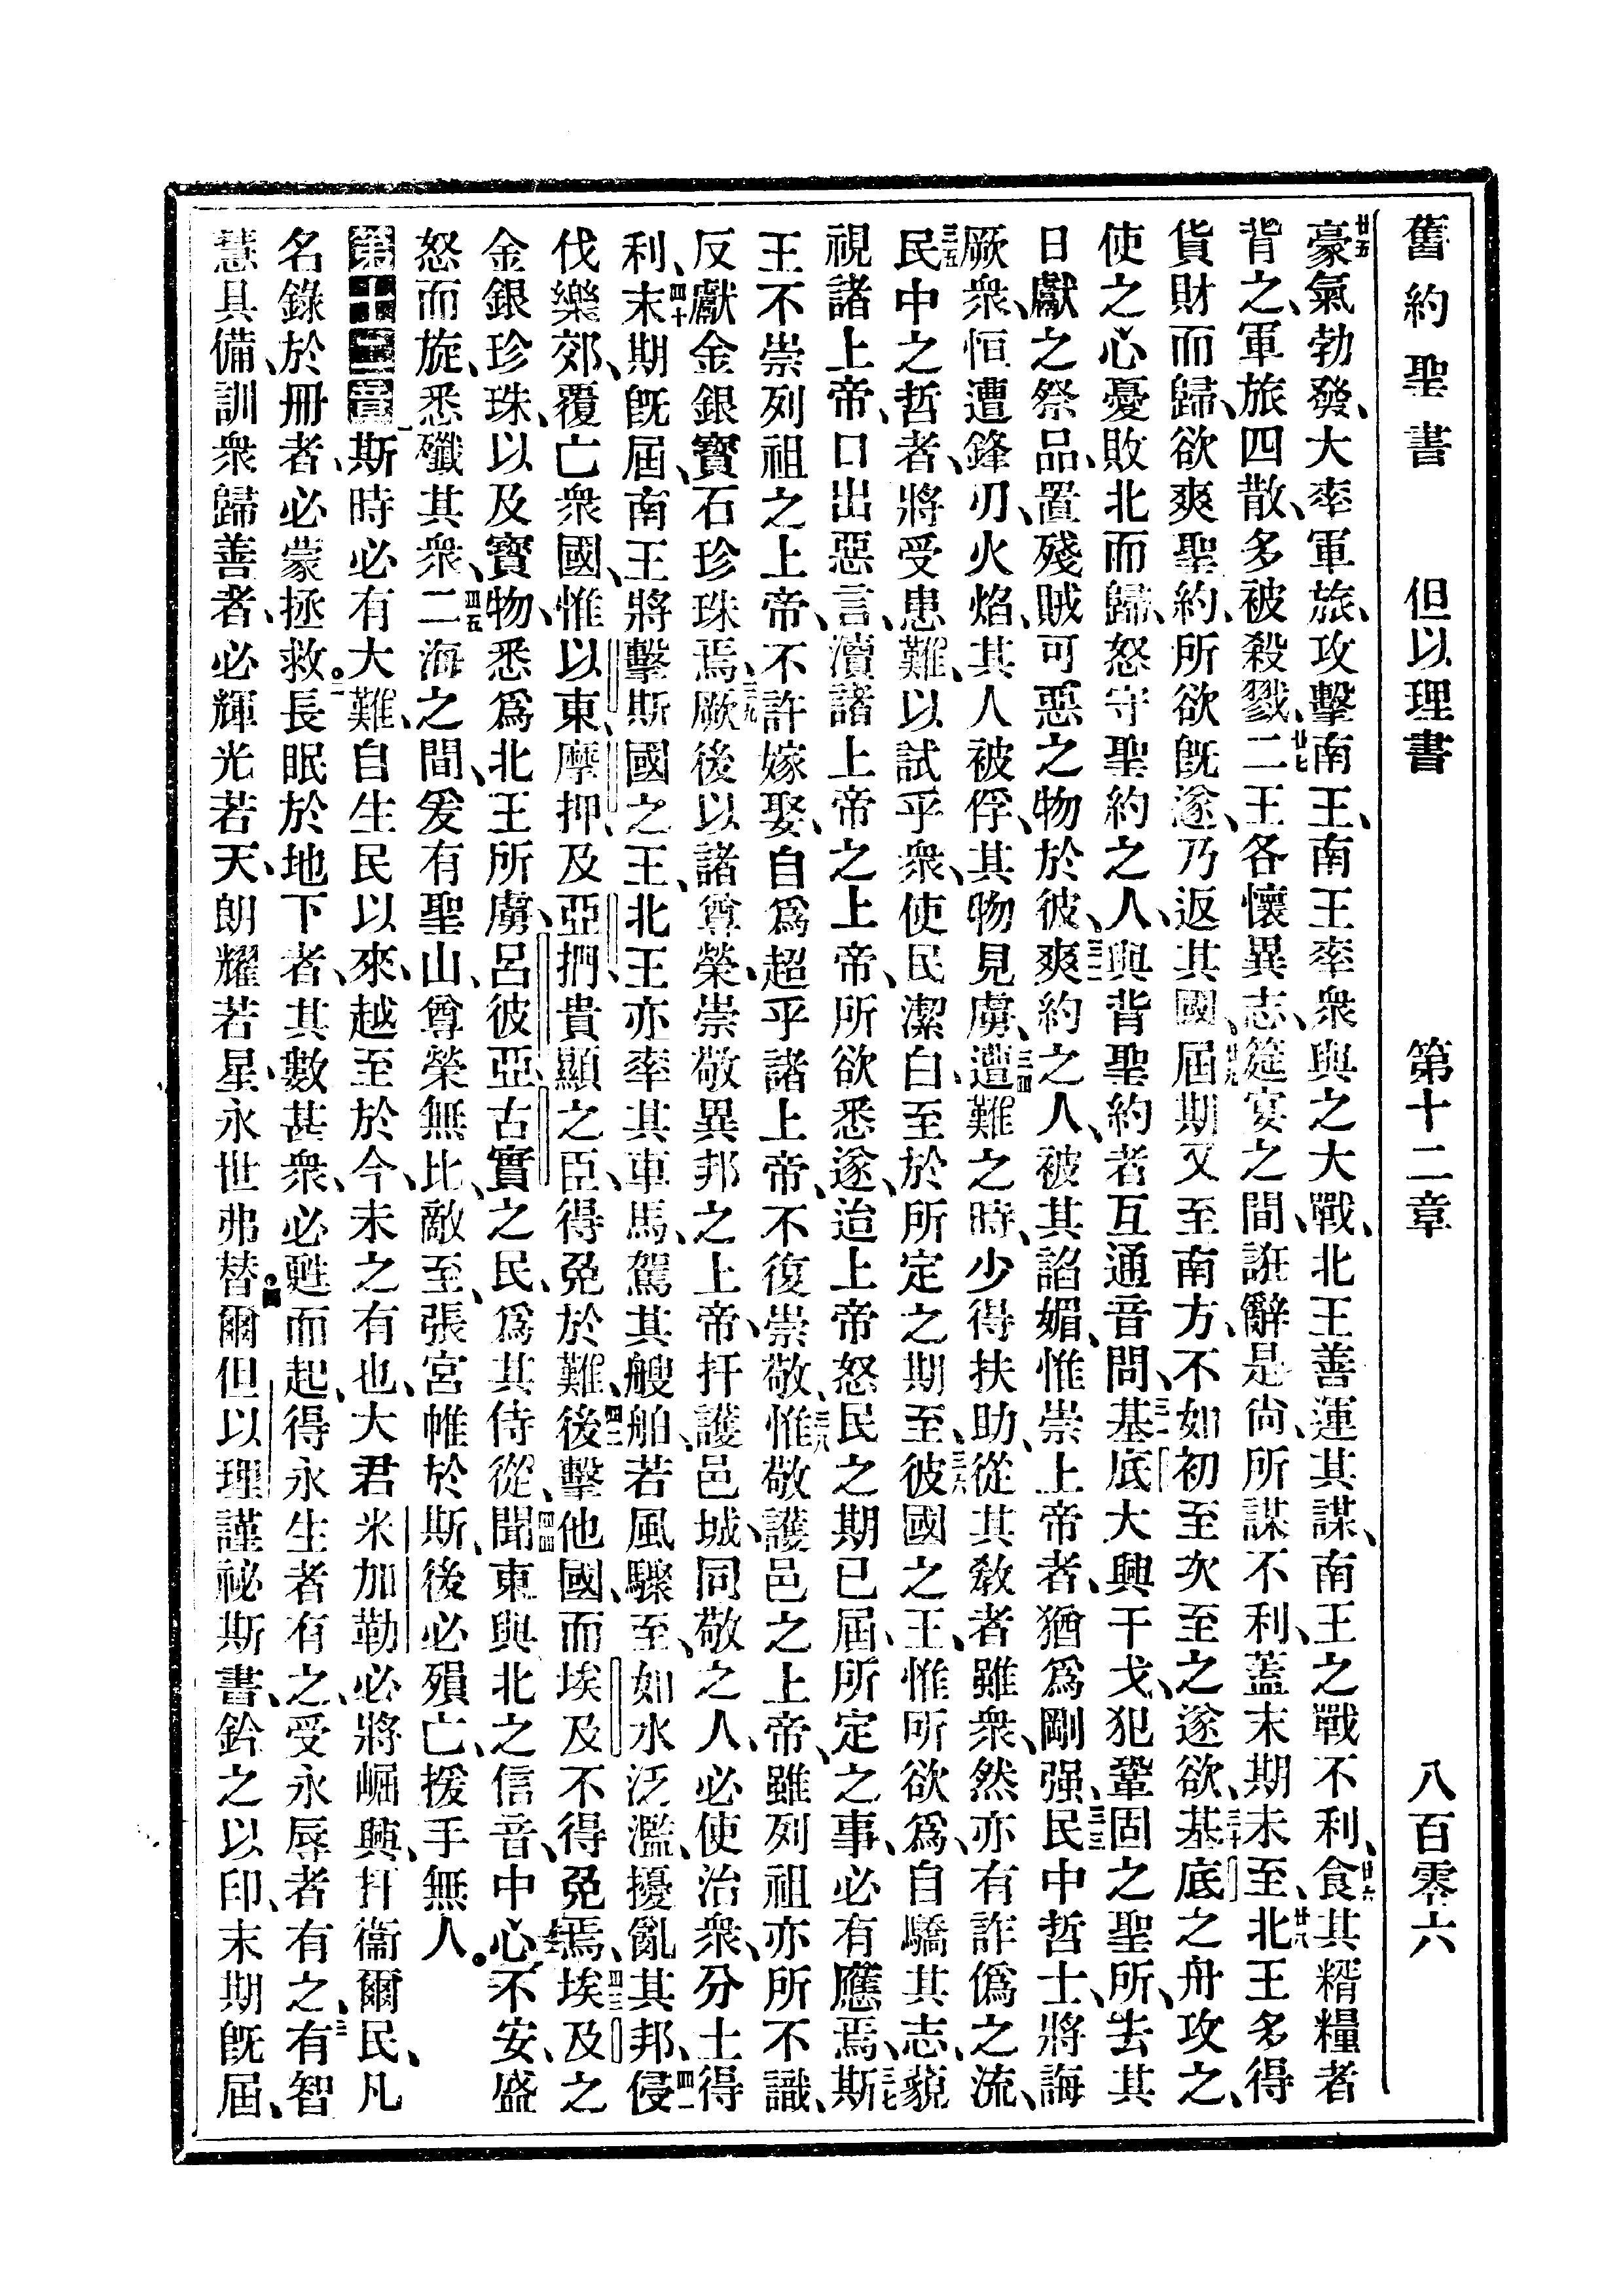 舊約聖書 但以理書 第十二章 八百零六
廿五豪氣勃發、大率軍旅、攻擊南王、南王率衆與之大戰、北王善運其謀、南王之戰不利、廿六食其糈糧者
背之、軍旅四散、多被殺戮、廿七二王各懷異志、筵宴之間、誑辭是尚、所謀不利、蓋末期未至、廿八北王多得
貨財而歸、欲爽聖約、所欲旣遂、乃返其國、廿九屆期又至南方、不如初至次至之遂欲、三十基底之舟攻之、
使之心憂敗北而歸、怒守聖約之人、與背聖約者互通音問、三一基底大興干戈、犯鞏固之聖所、去其
日獻之祭品、置殘賊可惡之物於彼、三二爽約之人、被其諂媚、惟崇上帝者、猶爲剛强、三三民中哲士、將誨
厥衆、恒遭鋒刃火焰、其人被俘、其物見虜、三四遭難之時、少得扶助、從其敎者雖衆、然亦有詐僞之流、
三五民中之哲者、將受患難、以試乎衆、使民潔白、至於所定之期至、三六彼國之王、惟所欲爲、自驕其志、藐
視諸上帝、口出惡言、瀆諸上帝之上帝、所欲悉遂、迨上帝怒民之期已屆、所定之事、必有應焉、三七斯
王不崇列祖之上帝、不許嫁娶、自爲超乎諸上帝、不復崇敬、三八惟敬護邑之上帝、雖列祖亦所不識、
反獻金銀寶石珍珠焉、三九厥後以諸尊榮、崇敬異邦之上帝、扞護邑城、同敬之人、必使治衆、分土得
利、四十末期旣屆、南王將擊斯國之王、北王亦率其車馬、駕其艘舶、若風驟至、如水泛濫、擾亂其邦、四一侵
伐樂郊、覆亡衆國、惟以東、摩押、及亞捫貴顯之臣、得免於難、四二後擊他國、而埃及不得免焉、四三埃及之
金銀珍珠、以及寶物、悉爲北王所虜、呂彼亞古實之民、爲其侍從、四四聞東與北之信音、中心不安、盛
怒而旋、悉殲其衆、四五二海之間、爰有聖山、尊榮無比、敵至、張宮帷於斯、後必殞亡、援手無人。
第十二章 一斯時必有大難、自生民以來、越至於今、未之有也、大君米加勒必將崛興、扞衞爾民、凡
名錄於冊者、必蒙拯救。二長眠於地下者、其數甚衆、必甦而起、得永生者有之、受永辱者有之、三有智
慧具備、訓衆歸善者、必輝光若天、朗耀若星、永世弗替。四爾但以理謹祕斯書、鈐之以印、末期旣屆、